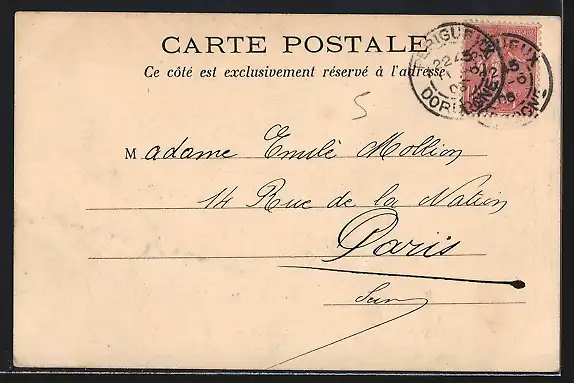 CARTE POSTALE
Ce côté est exclusivement réservé à l'adresse
5
Madame Emile Mollion
14 Rue de la Nation
Paris
Seine
PERIGUEUX
DORDOGNE